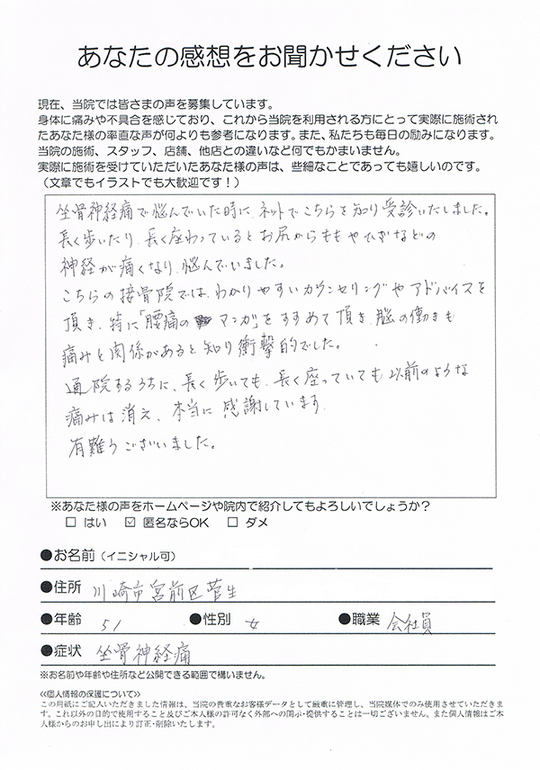 あなたの感想をお聞かせください
現在、当院では皆さまの声を募集しています。
身体に痛みや不具合を感じており、これから当院を利用される方にとって実際に施術され
たあなた様の率直な声が何よりも参考になります。また、私たちも毎日の励みになります。
当院の施術、スタッフ、店舗、他店との違いなど何でもかまいません。
実際に施術を受けていただいたあなた様の声は、些細なことであっても嬉しいのです。
（文章でもイラストでも大歓迎です！）
坐骨神経痛で悩んでいた時に、ネットでこちらを知り受診いたしました。
長く歩いたり、長く座わっているとお尻からももやひざなどの
神経が痛くなり、悩んでいました。
こちらの接骨院では、わかりやすいカウンセリングやアドバイスを
頂き、特に「腰痛のマンガ」をすすめて頂き、脳の働きも
痛みと関係があると知り衝撃的でした。
通院するうちに、長く歩いても、長く座っていても以前のような
痛みは消え、本当に感謝しています。
有難うございました。
※あなた様の声をホームページや院内で紹介してもよろしいでしょうか？
□ はい ☑ 匿名ならOK □ ダメ
●お名前（イニシャル可）
●住所 川崎市宮前区菅生
●年齢 51 ●性別 女 ●職業 会社員
●症状 坐骨神経痛
※お名前や年齢や住所など公開できる範囲で構いません。
≪個人情報の保護について≫
この用紙にご記入いただきました情報は、当院の貴重なお客様データとして厳重に管理し、当院媒体でのみ使用させていただきま
す。これ以外の目的で使用すること及びご本人様の許可なく外部への開示・提供することは一切ございません。また個人情報はご本
人様からのお申し出により訂正・削除いたします。